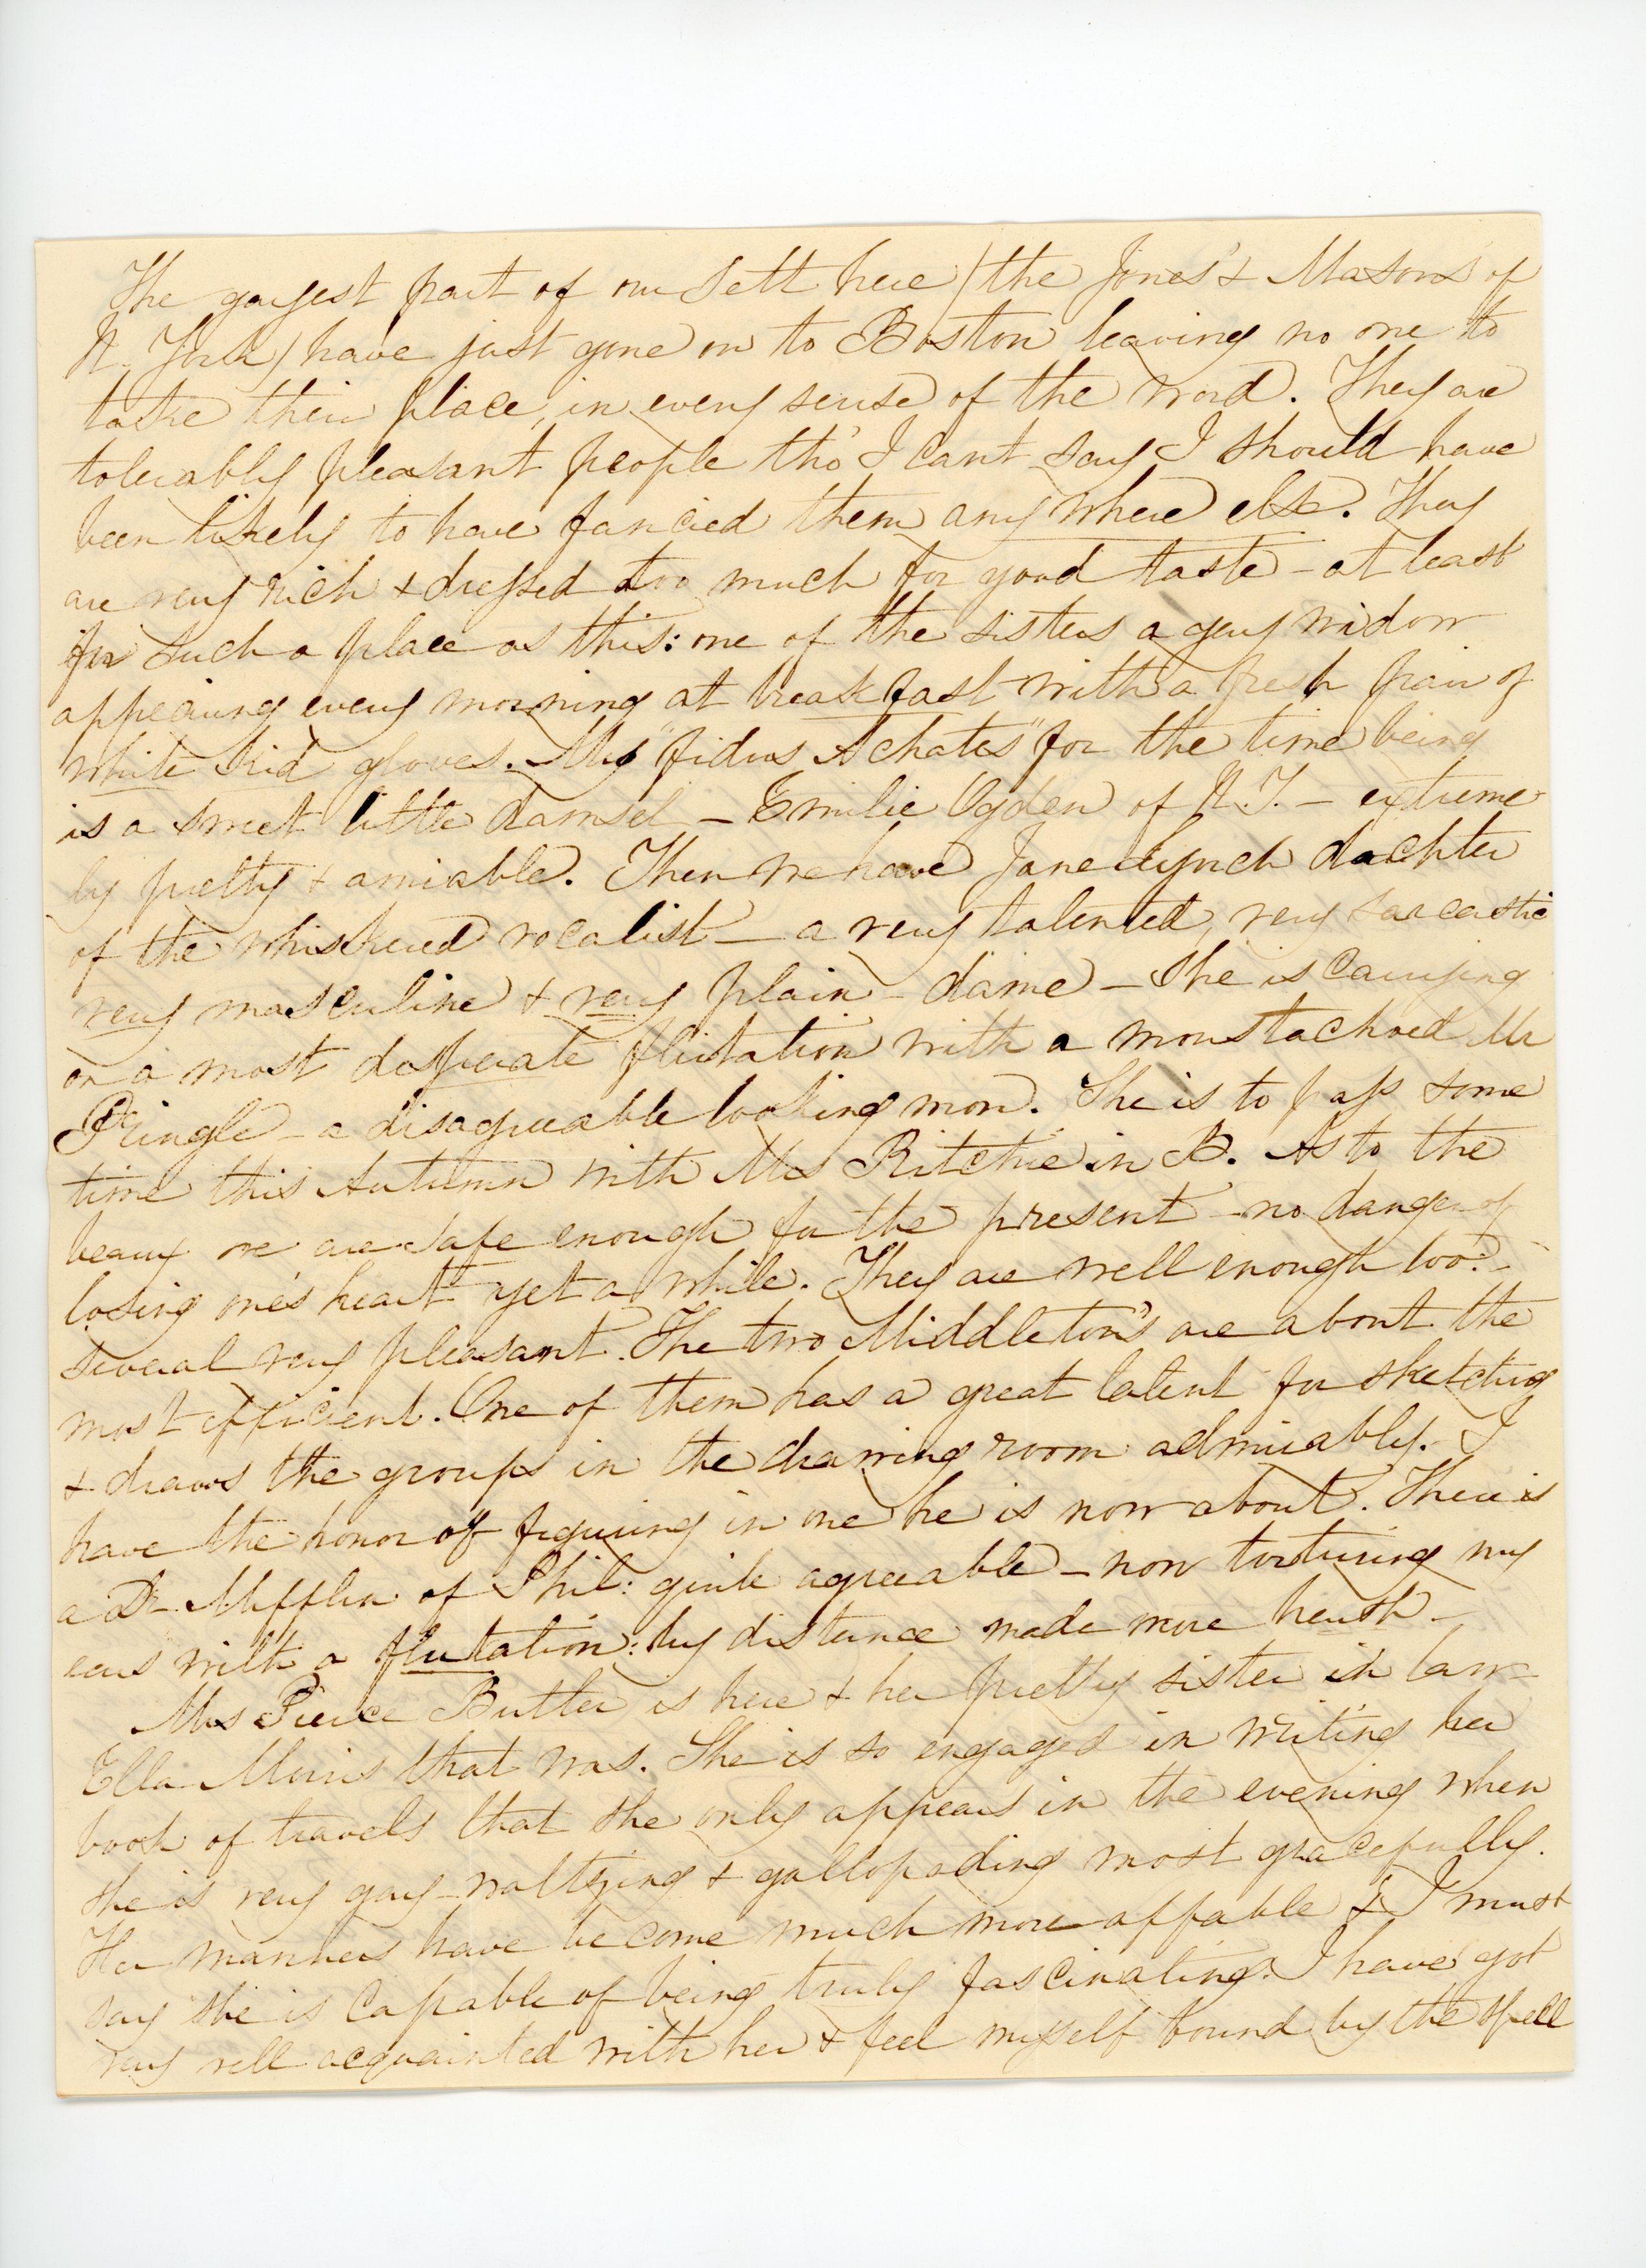 The gayest part of our Sett here (the Jones' & Masons of
N. York) have just gone on to Boston leaving no one to
take their place, in every sense of the word. They are
tolerably pleasant people tho' I cant say I should have
been likely to have fancied them any where else. They
are very rich & dressed too much for good taste - at least
for such a place as this: one of the sisters a gay widow
appearing every morning at breakfast with a fresh pair of
white kid gloves. My "fidus Achates" for the time being
is a sweet little damsel - Emilie Ogden of N.Y. - extreme-
ly pretty & amiable. Then we have Jane Lynch dachter
of the whiskered vocalist - a very talented, very sarcastic
very masculine & very plain - dame - She is carrying
on a most desperate flirtation with a moustachoed Mr
Pringle - a disagreeable looking man. She is to pass some
time this Autumn with Mrs Ritchie in B. As to the
beaux we are safe enough for the present - no danger of
losing one's heart yet a while. They are well enough too: -
several very pleasant. The two Middleton's are about the
most efficient. One of them has a great talent for sketching
& draws the groups in the drawing room admirably. I
have the honor of figuring in one he is now about. There is
a Dr. Mifflin of Phil: quite agreeable - now torturing my
ears with a flutation: by distance made more harsh -
Mrs Pierce Butler is here & her pretty sister in law
Ella Morris that was. She is so engaged in writing her
book of travels that she only appears in the evening when
she is very gay - waltzing & gallopading most gracefully.
Her manners have become much more affable & I must
say she is capable of being truly fascinating. I have got
very well acquainted with her & feel myself bound by the spell